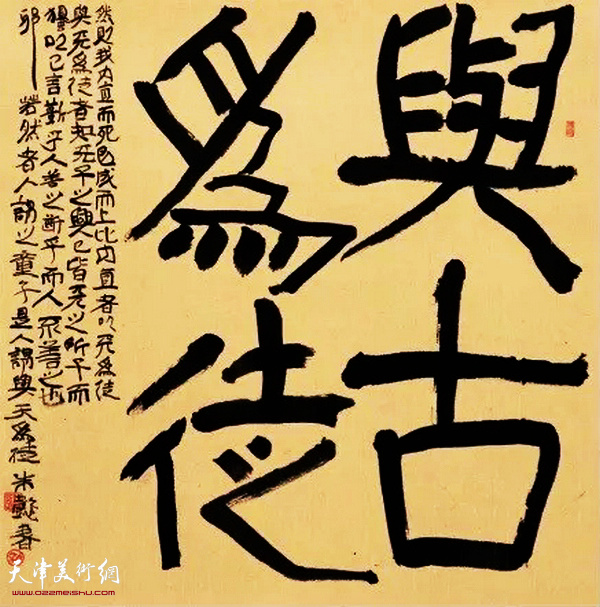 與古
爲徒
然則我内直而外曲成而上比内直者以天爲徒
與天爲徒者知天子之與己皆天之所子而
獨以己言蘄乎人善之蘄乎而人不善之
邪若然者人謂之童子是人謂與天爲徒 朱懿書
天津美術網
www.022meishu.com